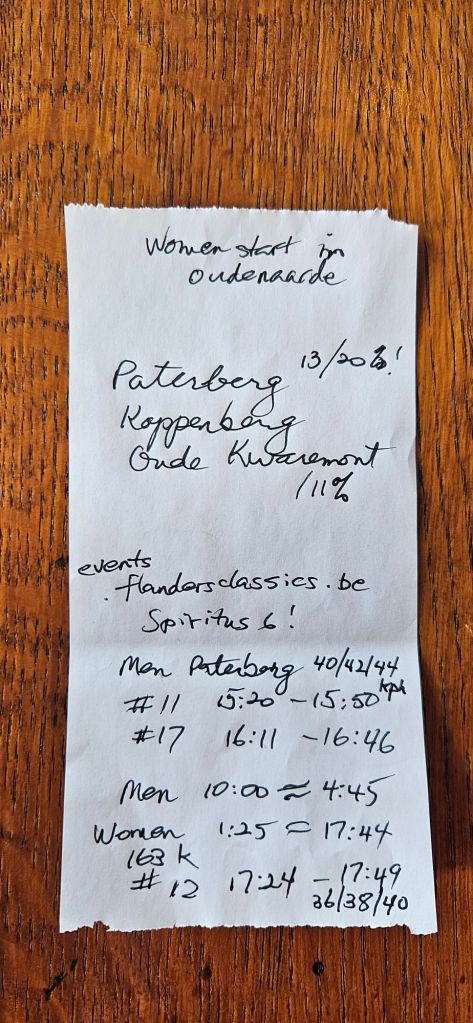 Women start in
oudenaarde
13/20%!
Paterberg
Koppenberg
Oude Kwaremont
/11%
events
.flandersclassics.be
Spiritus 6!
Men Paterberg 40/42/44
kph
#11 15:20 - 15:50
#17 16:11 - 16:46
Men 10:00 ≈ 4:45
Women 1:25 = 17:44
163 K
#12 17:24 - 17:49
36/38/40